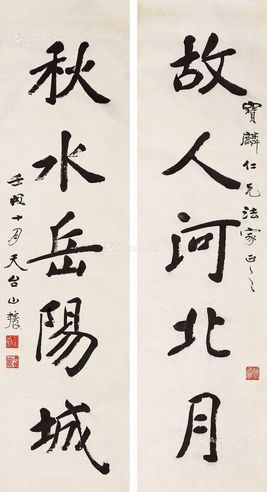 故人河北月
寶麟仁兄法家正之
秋水岳陽城
壬戌十月天台山農